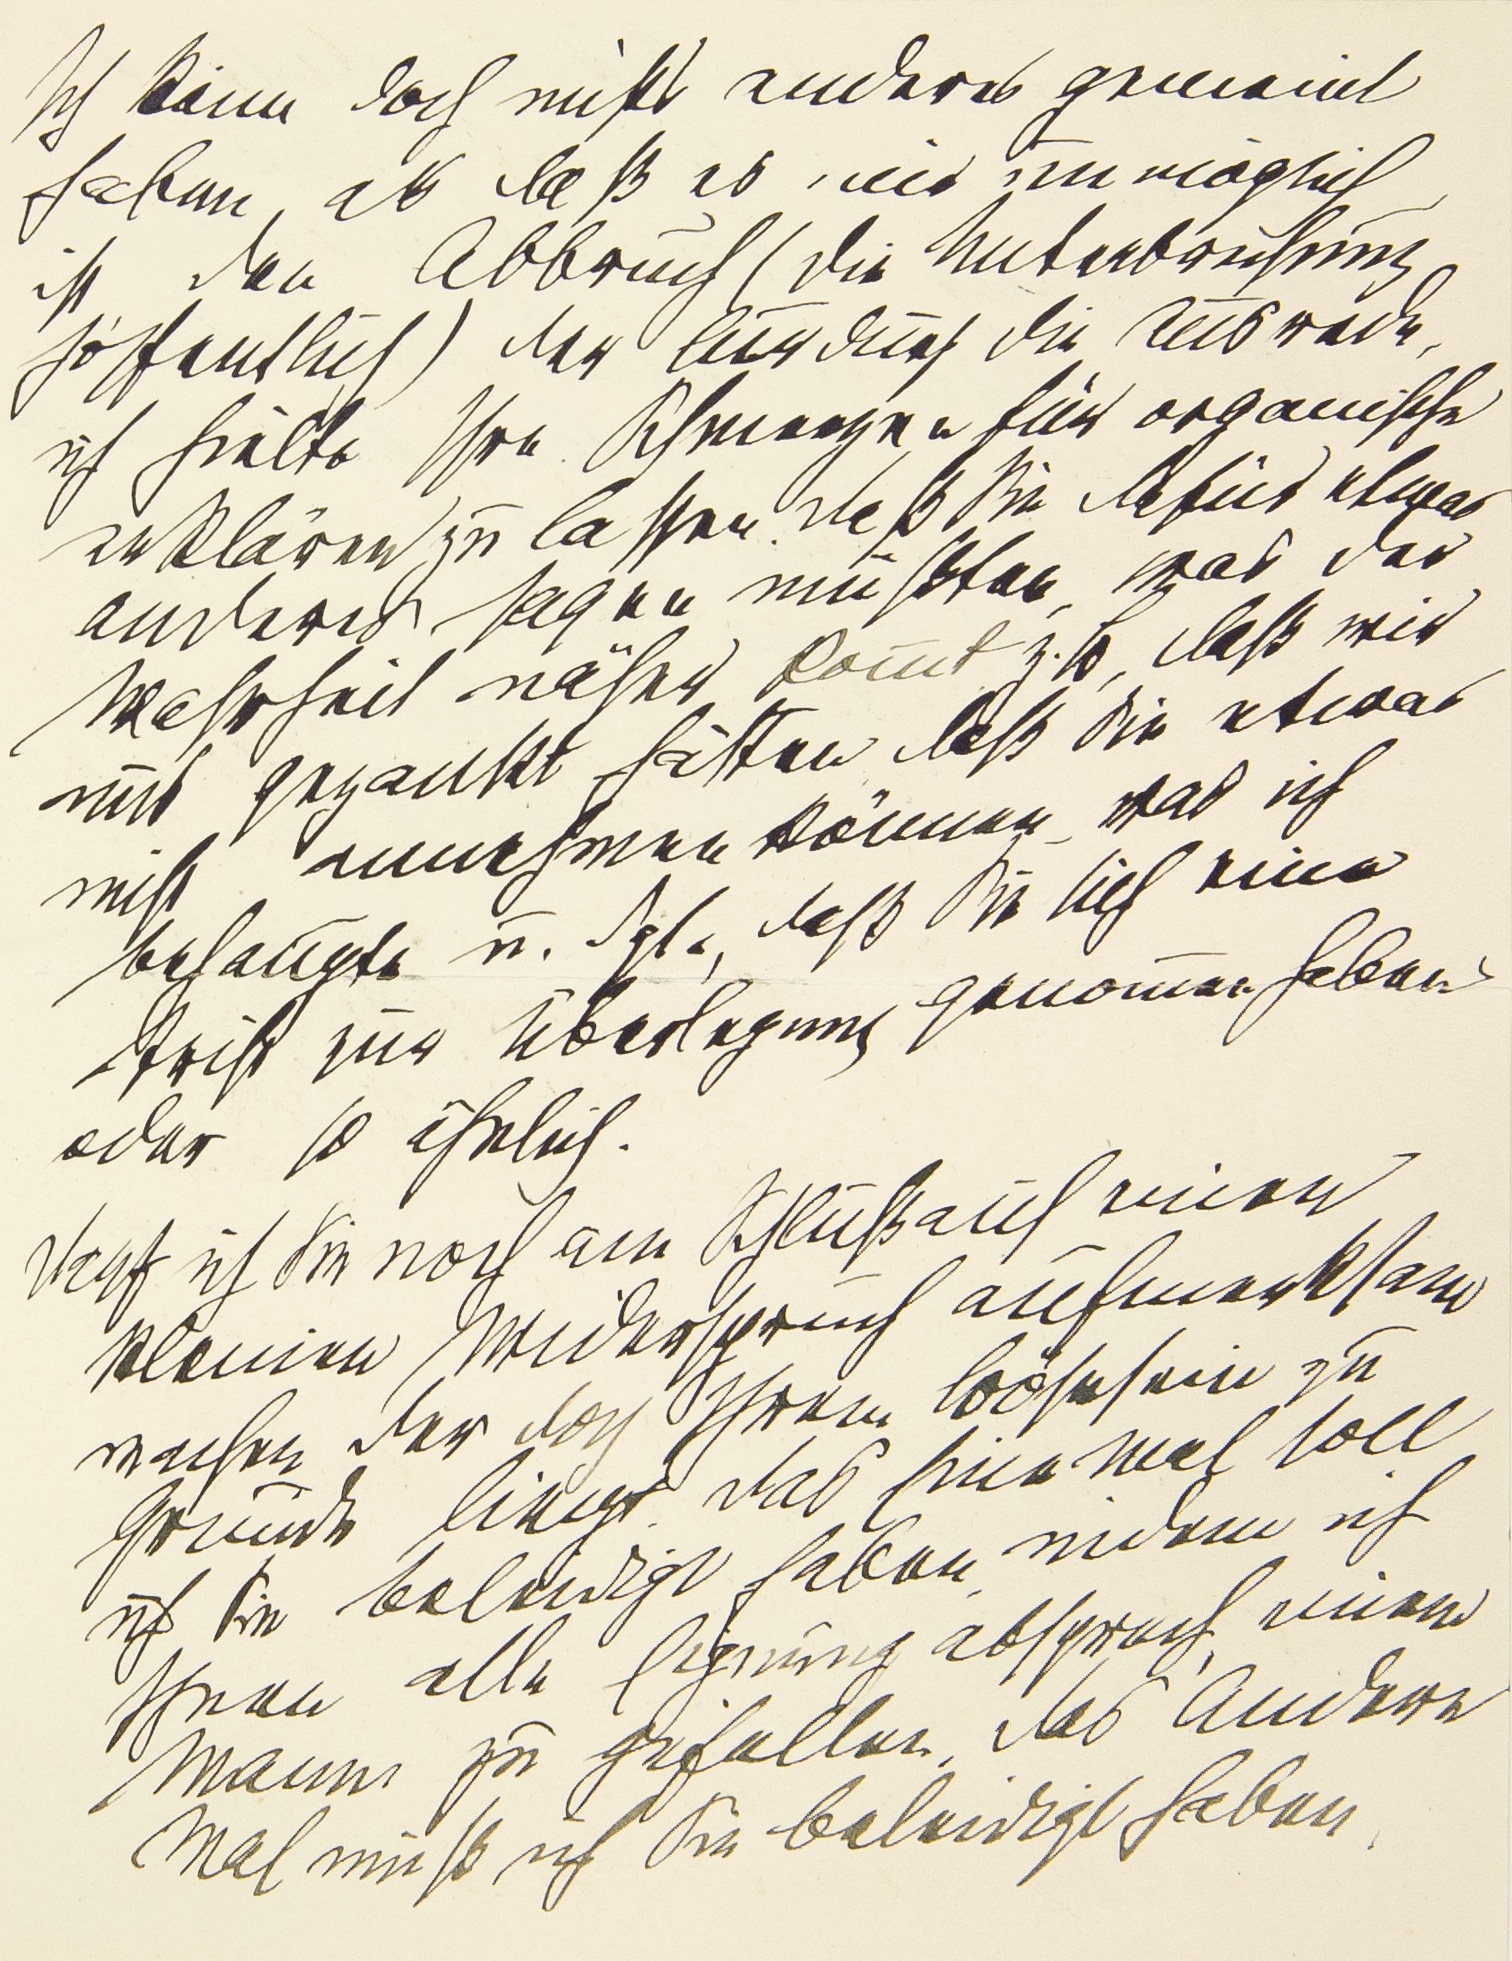 Ich kann doch nicht anderes gemeint
haben, als daß es mir unmöglich
ist den Abbruch (die Unterbrechung
hoffentlich) der Cur durch die Ausrede,
ich hielte Ihre Schmerzen für organische
erklären zu lassen. daß Sie dafür etwas
anderes sagen müßten, was der
Wahrheit näher kom̅t z.B. daß wir
uns gezankt hätten daß Sie etwas
nicht annehmen können, was ich
behaupte u. dgl., daß Sie sich eine
Frist zur Überlegung genom̅en haben
oder so ähnlich.
Darf ich Sie noch am Schluß auf einen
kleinen Widerspruch aufmerksam
machen der doch Ihrem bösesein zu
Grunde liegt. Das eine Mal soll
ich Sie beleidigt haben, indem ich
Ihnen alle Eignung absprach, einem
Manne zu gefallen, das Andere
Mal muß ich Sie beleidigt haben,